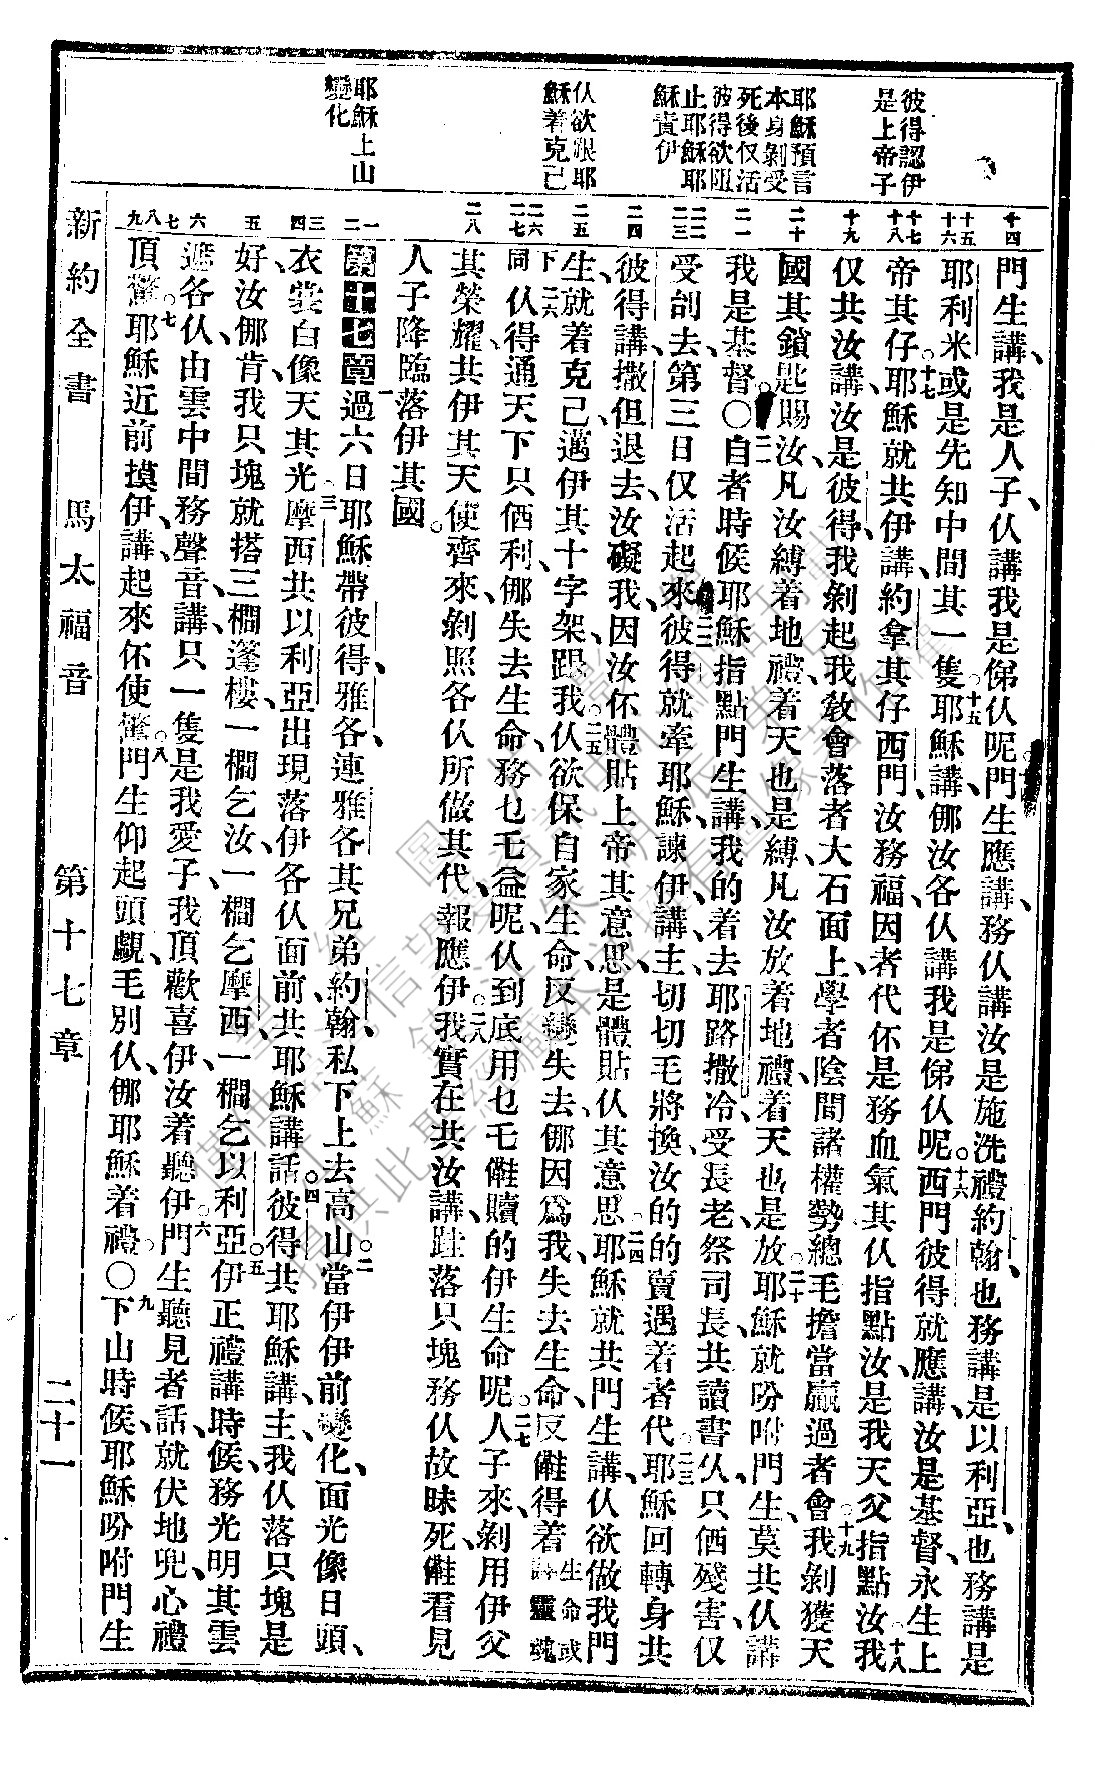 彼得認伊
是上帝子
耶穌預言
本身剝受
死後仅活
彼得欲阻
止耶穌耶
穌責伊
仈欲跟耶
穌着克己
耶穌上山
變化
十四
十五
十六
十七
十八
十九
二十
二一
二二
二三
二四
二五
二六
二七
二八
一
二
三
四
五
六
七
八
九
門生講、我是人子、仈講我是俤仈呢、門生應講、務仈講汝是施洗禮約翰、也務講是以利亞、也務講是
耶利米、或是先知中間其一隻、耶穌講、㑚汝各仈講我是俤仈呢。十六西門彼得就應講、汝是基督、永生上
帝其仔。十七耶穌就共伊講、約拿其仔西門、汝務福、因者代伓是務血氣其仈指點汝、是我天父指點汝。十八我
仅共汝講、汝是彼得、我剝起我敎會落者大石面上、學者陰間諸權勢、總毛擔當贏過者會。十九我剝獲天
國其鎖匙賜汝、凡汝縛着地禮、着天也是縛、凡汝放着地禮、着天也是放。二十耶穌就吩咐門生、莫共仈講
我是基督。〇二一自者時候、耶穌指點門生講、我的着去耶路撒冷、受長老祭司長共讀書仈只価殘害、仅
受刣去、第三日仅活起來。二二彼得就牽耶穌諫伊講、主切切毛將換汝的的賣遇着者代。二三耶穌回轉身共
彼得講、撒但退去、汝礙我、因汝伓體貼上帝其意思、是體貼仈其意思。二四耶穌就共門生講、仈欲做我門
生、就着克己、邁伊其十字架、跟我。二五仈欲保自家生命、反變失去、㑚因爲我失去生命、反㒑得着生命或譯靈魂
下同。二六仈得通天下只価利、㑚失去生命、務乜毛益呢、仈到底用乜毛㒑贖的伊生命呢。二七人子來、剝用伊父
其榮耀、共伊其天使齊來、剝照各仈所做其代、報應伊。二八我實在共汝講、跬落只塊、務仈故昧死、㒑看見
人子降臨落伊其國。
第十七章一過六日、耶穌帶彼得、雅各、連雅各其兄弟約翰、私下上去高山。二當伊伊前變化、面光像日頭、
衣裳白像天其光。三摩西共以利亞出現落伊各仈面前、共耶穌講話。四彼得共耶穌講、主、我仈落只塊是
好、汝㑚肯、我只塊就搭三櫊蓬樓、一櫊乞汝、一櫊乞摩西、一櫊乞以利亞。五伊正禮講時候、務光明其雲
遮各仈、由雲中間務聲音講、只一隻是我愛子、我頂歡喜伊、汝着聽伊。六門生聽見者話、就伏地兜心禮
頂驚。七耶穌近前摸伊講、起來、伓使驚。八門生仰起頭覷、毛別仈、㑚耶穌着禮。〇九下山時候、耶穌吩咐門生
新約全書　馬太福音　第十七章　二十一